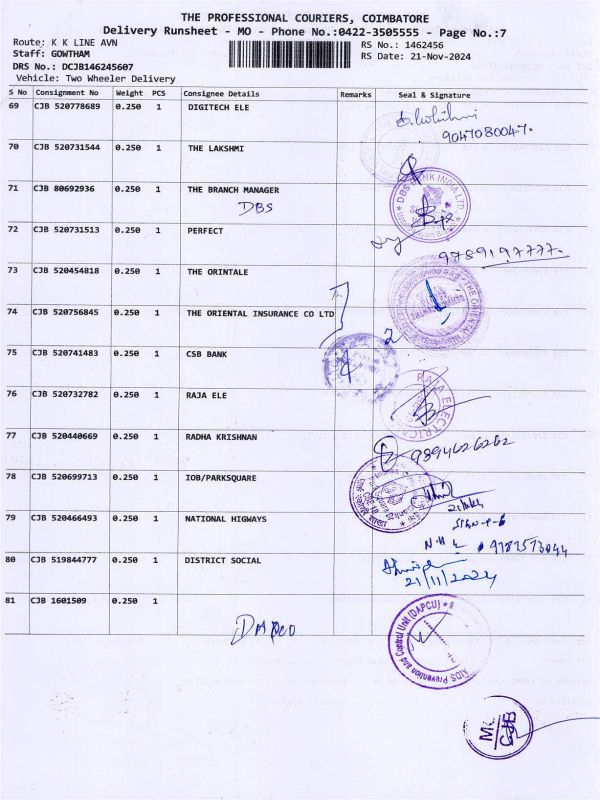 THE PROFESSIONAL COURIERS, COIMBATORE
Delivery Runsheet - MO - Phone No.:0422-3505555 - Page No.:7
Route: K K LINE AVN
Staff: GOWTHAM
RS No.: 1462456
RS Date: 21-Nov-2024
DRS No.: DCJB146245607
Vehicle: Two Wheeler Delivery
S No Consignment No Weight PCS Consignee Details Remarks Seal & Signature
69 CJB 520778689 0.250 1 DIGITECH ELE
9047080047.
70 CJB 520731544 0.250 1 THE LAKSHMI
71 CJB 80692936 0.250 1 THE BRANCH MANAGER
DBS
DBS BANK INDIA LTD
72 CJB 520731513 0.250 1 PERFECT
9789197777.
73 CJB 520454818 0.250 1 THE ORINTALE
THE ORIENTAL
74 CJB 520756845 0.250 1 THE ORIENTAL INSURANCE CO LTD
2
75 CJB 520741483 0.250 1 CSB BANK
76 CJB 520732782 0.250 1 RAJA ELE
RAJA ELECTRICAL
77 CJB 520440669 0.250 1 RADHA KRISHNAN
9894626262
78 CJB 520699713 0.250 1 IOB/PARKSQUARE
79 CJB 520466493 0.250 1 NATIONAL HIGWAYS
80 CJB 519844777 0.250 1 DISTRICT SOCIAL
21/11/2024
81 CJB 1601509 0.250 1
DAPCO
AIDS Prevention and Control Unit (DAPCU)
CJB